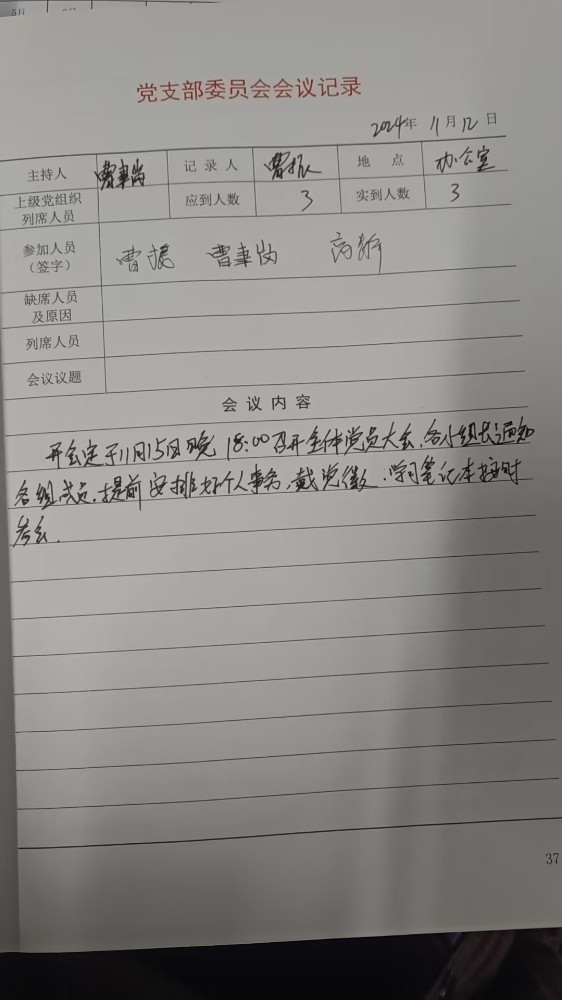 党支部委员会会议记录
2024年 11月 12日
主持人 曹 记录人 曹振 地点 办公室
上级党组织列席人员 应到人数 3 实到人数 3
参加人员（签字） 曹振 曹 高
缺席人员及原因
列席人员
会议议题
会议内容
开会定于11月15日晚 18:00召开全体党员大会,各小组长通知
各组成员,提前安排好个人事务,戴党徽、学习笔记本按时
会.
37